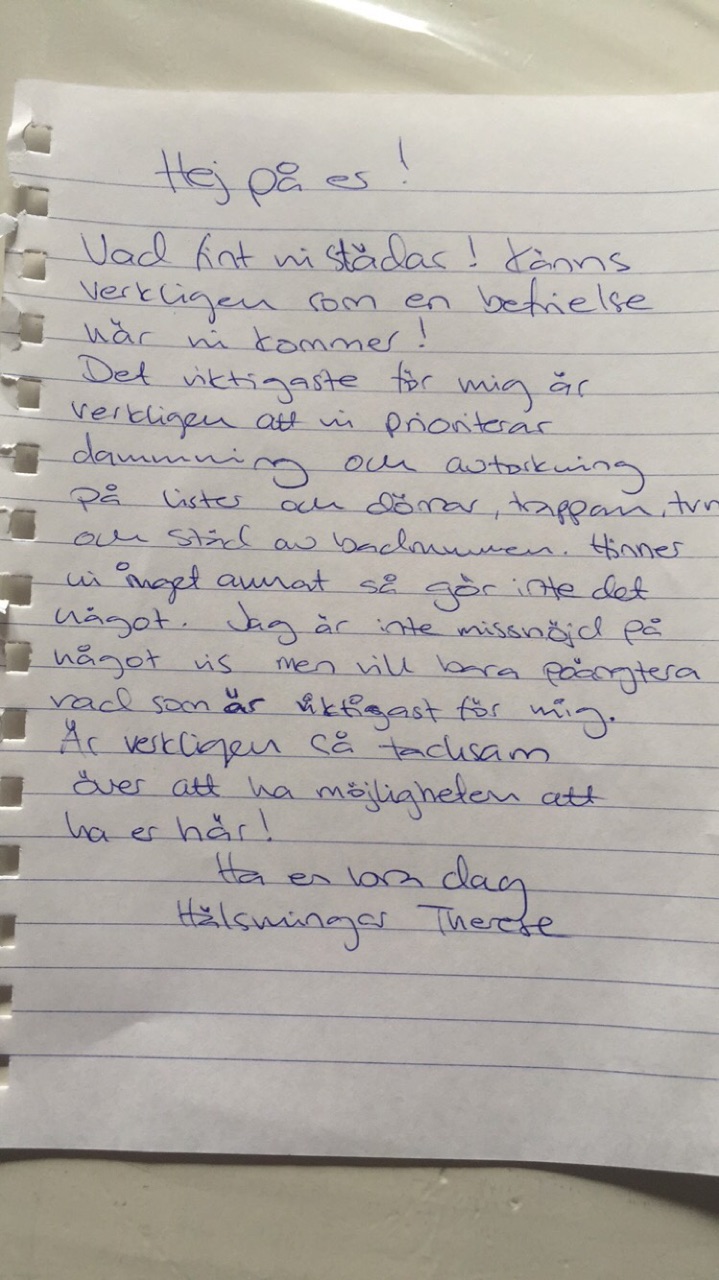 Hej på es!
Vad fint ni städar! Känns
verkligen som en befrielse
när ni kommer!
Det viktigaste för mig är
verkligen att ni prioriterar
dammning och avtorkning
på lister och dörrar, trappan, tvn
och städ av badrummen. Hinner
ni inget annat så gör inte det
något. Jag är inte missnöjd på
något vis men vill bara påängtera
vad som är viktigast för mig.
Är verkligen så tacksam
över att ha möjligheten att
ha er här!
Ha en bra dag
Hälsningar Therese